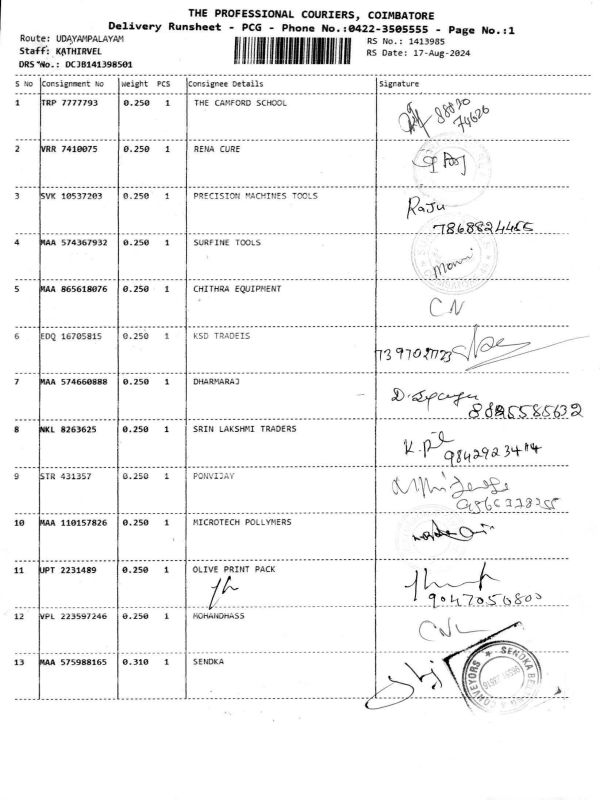 THE PROFESSIONAL COURIERS, COIMBATORE
Delivery Runsheet - PCG - Phone No.:0422-3505555 - Page No.:1
Route: UDAYAMPALAYAM RS No.: 1413985
Staff: KATHIRVEL RS Date: 17-Aug-2024
DRS No.: DCJB141398501
S No Consignment No Weight PCS Consignee Details Signature
1 TRP 7777793 0.250 1 THE CAMFORD SCHOOL
74626
2 VRR 7410075 0.250 1 RENA CURE
3 SVK 10537203 0.250 1 PRECISION MACHINES TOOLS Raju
7868824455
4 MAA 574367932 0.250 1 SURFINE TOOLS
5 MAA 865618076 0.250 1 CHITHRA EQUIPMENT CN
6 EDQ 16705815 0.250 1 KSD TRADEIS
7 MAA 574660888 0.250 1 DHARMARAJ
8 NKL 8263625 0.250 1 SRIN LAKSHMI TRADERS
9 STR 431357 0.250 1 PONVIJAY
10 MAA 110157826 0.250 1 MICROTECH POLLYMERS
11 UPT 2231489 0.250 1 OLIVE PRINT PACK
9047050800
12 VPL 223597246 0.250 1 MOHANDHASS
13 MAA 575988165 0.310 1 SENDKA
SENDKA
CONVEYORS